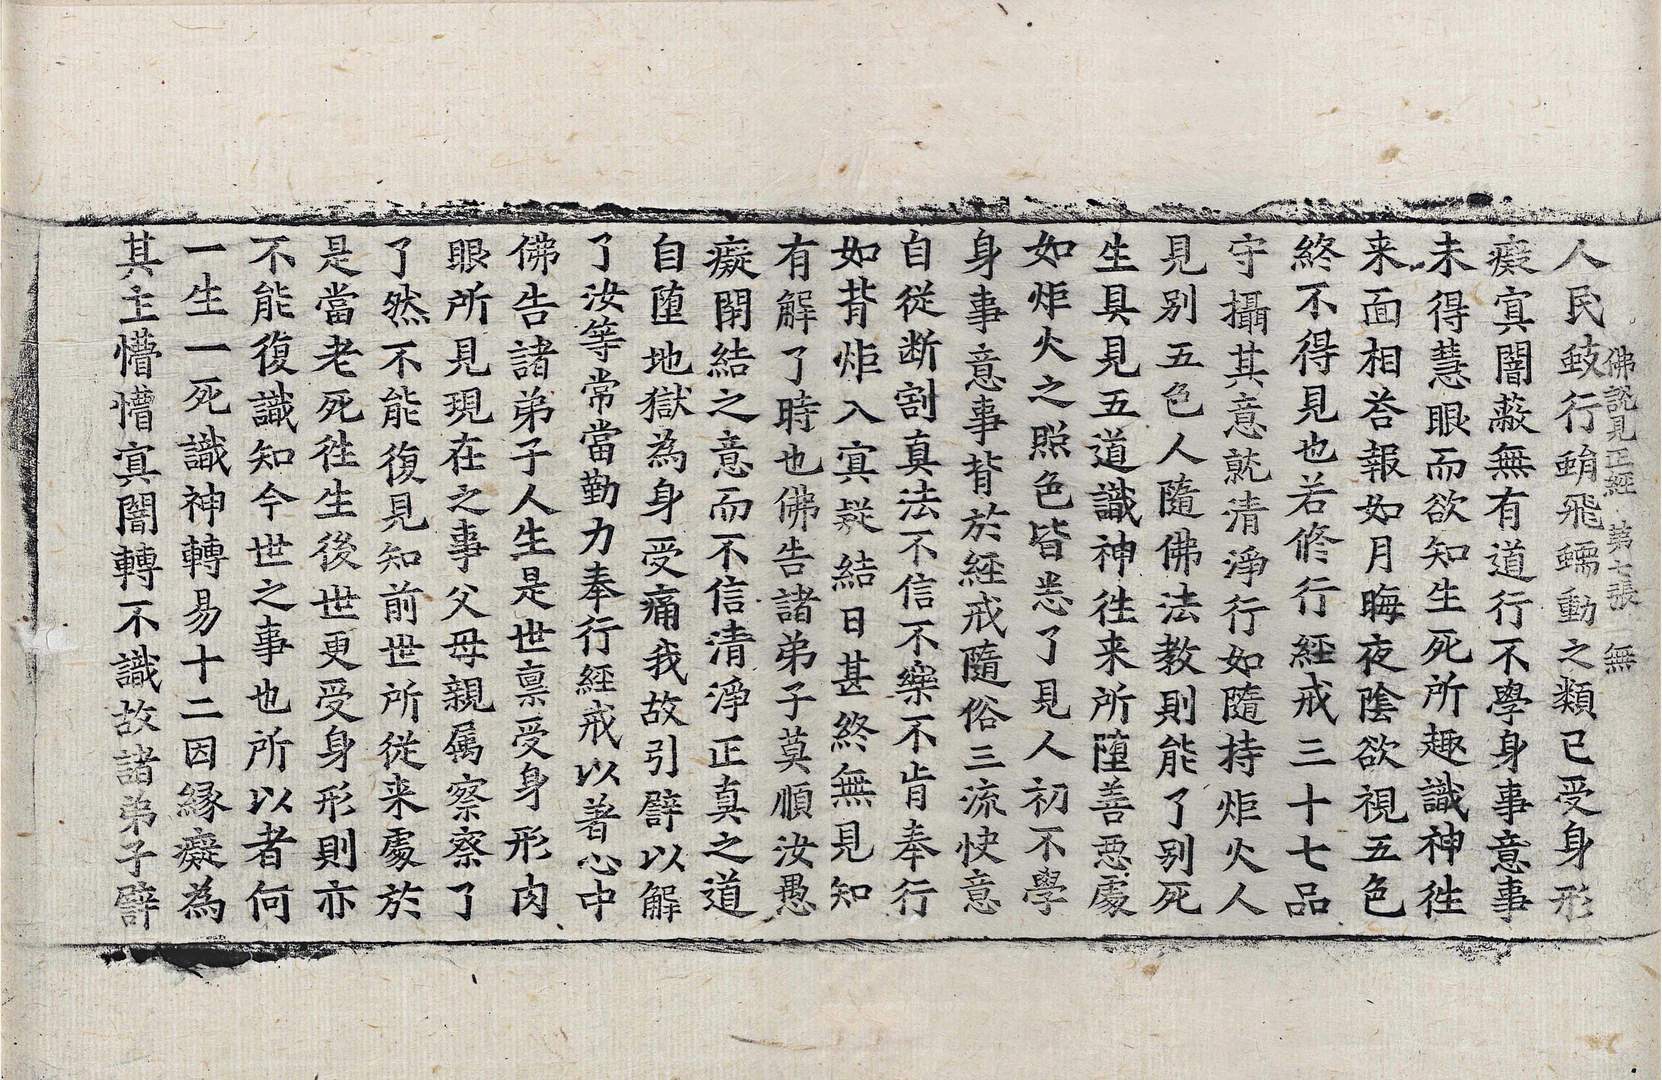 佛說見正經 第七張 無
人民蚑行蜎飛蠕動之類已受身形
癡冥闇蔽無有道行不學身事意事
未得慧眼而欲知生死所趣識神往
来面相荅報如月晦夜陰欲視五色
終不得見也若修行經戒三十七品
守攝其意就清淨行如隨持炬火人
見别五色人隨佛法教則能了别死
生具見五道識神往来所墮善惡處
如炬火之照色皆悉了見人初不學
身事意事背於經戒隨俗三流快意
自從断割真法不信不樂不肯奉行
如背炬入冥疑結日甚終無見知
有解了時也佛告諸弟子莫順汝愚
癡閉結之意而不信清淨正真之道
自墮地獄為身受痛我故引譬以解
了汝等常當勤力奉行經戒以著心中
佛告諸弟子人生是世禀受身形肉
眼所見現在之事父母親属察察了
了然不能復見知前世所從来處於
是當老死往生後世更受身形則亦
不能復識知今世之事也所以者何
一生一死識神轉易十二因縁癡為
其主懵懵冥闇轉不識故諸弟子譬